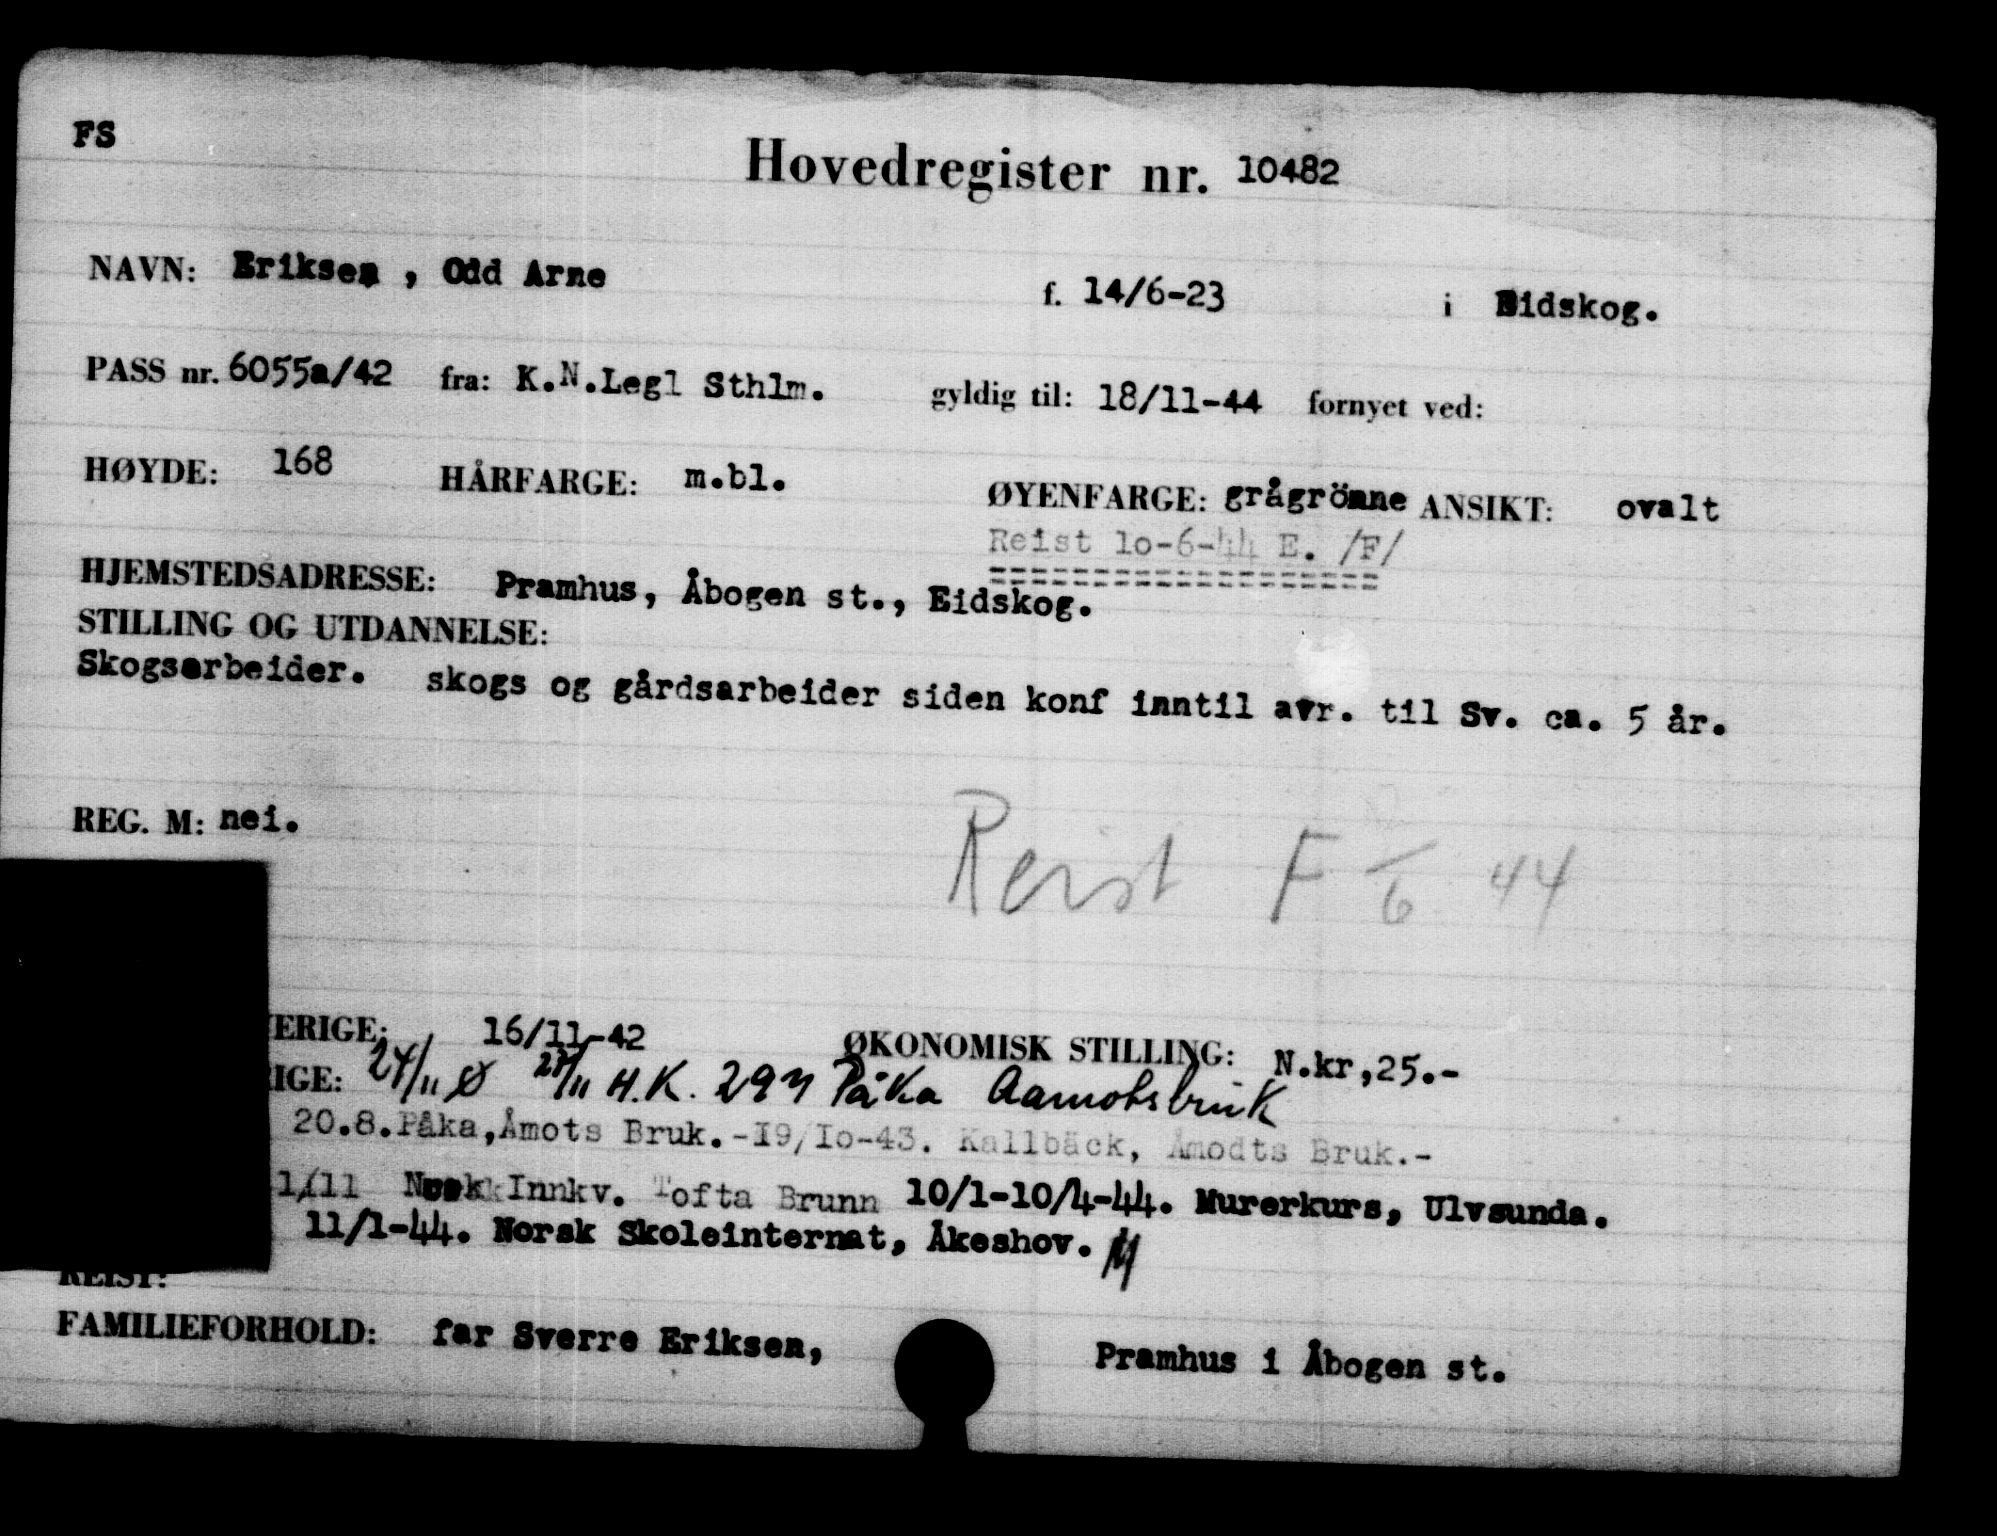 FS
Hovedregister nr. 10482
NAVN: Eriksen , Odd Arne f. 14/6-23 i Eidskog.
PASS nr. 6055a/42 fra: K.N.Legl Sthlm. gyldig til: 18/11-44 fornyet ved:
HØYDE: 168 HÅRFARGE: m.bl. ØYENFARGE: grågrönne ANSIKT: ovalt
Reist lo-6-44 E. /F/
HJEMSTEDSADRESSE: Pramhus, Åbogen st., Eidskog.
STILLING OG UTDANNELSE:
Skogsarbeider. skogs og gårdsarbeider siden konf inntil avr. til Sv. ca. 5 år.
REG. M: nei.
Reist F /6 44
ERIGE: 16/11-42 ØKONOMISK STILLING: N.kr,25.-
IGE: 24/11 Ø 27/11 H.K. 294 Påka Aamotsbruk
20.8.Påka,Åmots Bruk.-I9/Io-43. Kallbäck, Åmodts Bruk.-
1/11 Norsk Innkv. Tofta Brunn 10/1-10/4-44. Murerkurs, Ulvsunda.
11/1-44. Norsk Skoleinternat, Åkeshov.
REIST:
FAMILIEFORHOLD: far Sverre Eriksen, Pramhus i Åbogen st.